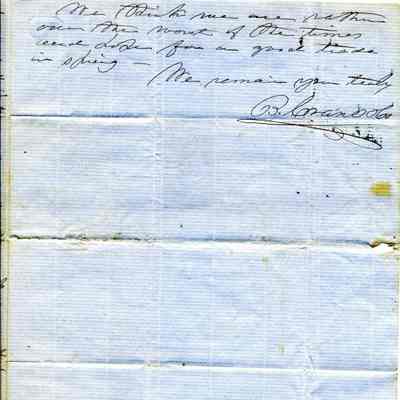 We think we are rather
over the worst of the times
and hope for a good trade
in spring —
We remain yours truly
B. & Co